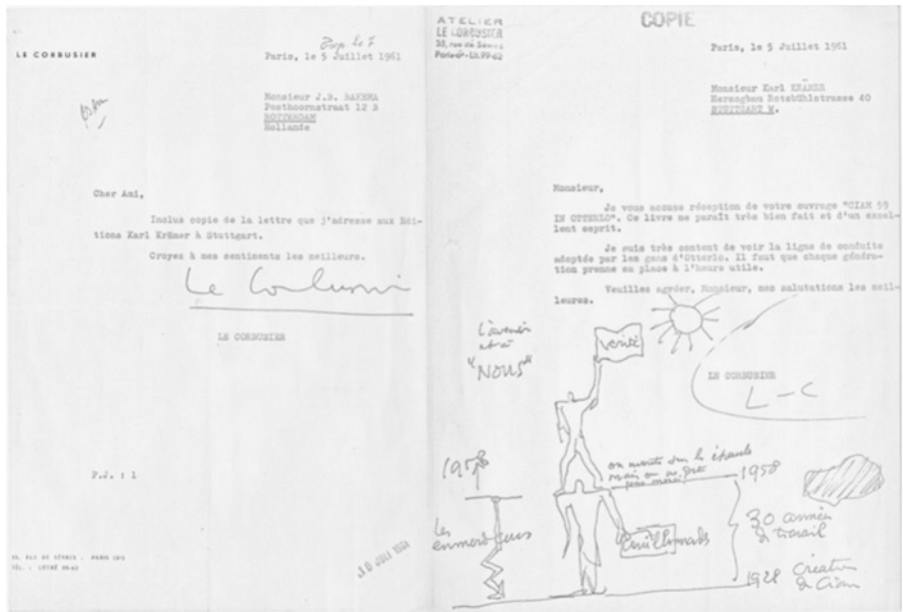 LE CORBUSIER
Paris, le 5 Juillet 1961
Monsieur J.B. BAKEMA
Posthoornstraat 12 B
ROTTERDAM
Hollande
Cher Ami,
Inclus copie de la lettre que j'adresse aux Edi-
tions Karl Krämer à Stuttgart.
Croyez à mes sentiments les meilleurs.
Le Corbusier
LE CORBUSIER
P.J. : 1
35, RUE DE SÈVRES - PARIS
ATELIER
LE CORBUSIER
35, rue de Sèvres
COPIE
Paris, le 5 Juillet 1961
Monsieur Karl KRÄMER
Rotebühlstrasse 40
STUTTGART W.
Monsieur,
Je vous accuse réception de votre ouvrage "CIAM 59
IN OTTERLO". Ce livre me paraît très bien fait et d'un excel-
lent esprit.
Je suis très content de voir la ligne de conduite
adoptée par les gens d'Otterlo. Il faut que chaque généra-
tion prenne sa place à l'heure utile.
Veuillez agréer, Monsieur, mes salutations les meil-
leures.
LE CORBUSIER
L-C
l'avenir
est à
"NOUS"
vérité
on monte sur les épaules
mais on ne dit
pas merci
1958
1958
Les
emmerdeurs
30 années
de travail
1928 Création
de Ciam